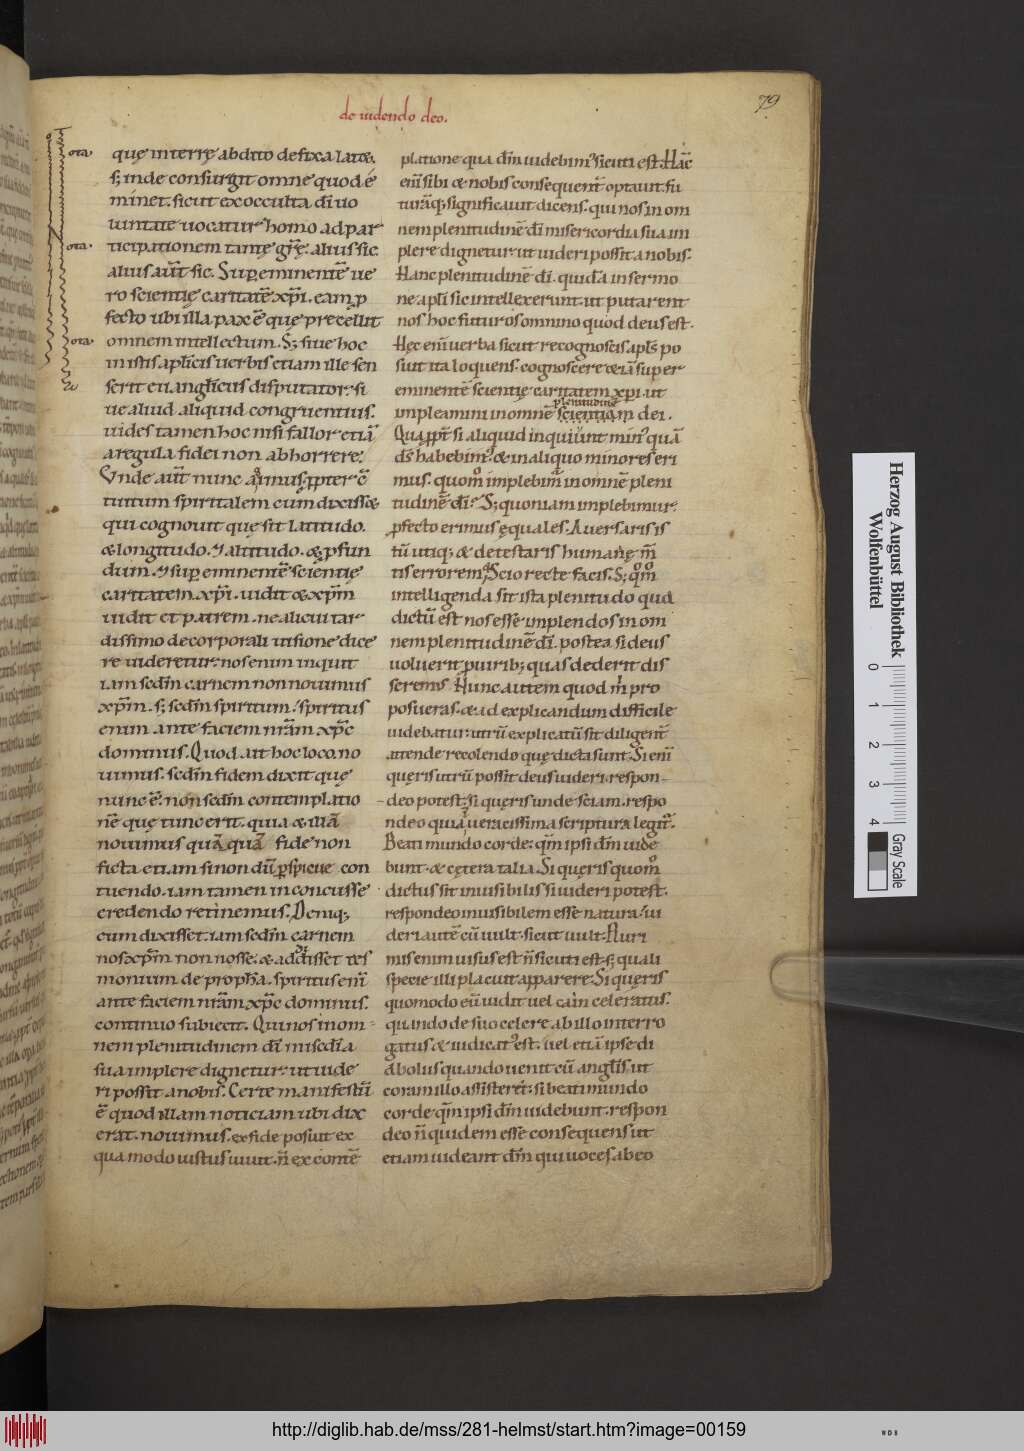 de uidendo deo.
79
ota
ota
ota
quę in terrę abdito defixa latet.
s; inde consurgit omne quod é
minet. sicut ex occulta dī uo
luntate uocatur homo ad par
ticipationem tantę grę̄. alius sic.
alius aūt sic. Sup eminentē ue
ro scientię caritatē xp̄i. eam p
fecto ubi illa pax ē quę precellit
omnem intellectum. S; siue hoc
in istis aplīcis uerbis etiam ille sen
serit euanglīcus disputator. si
ue aliud aliquid congruentius.
uides tamen hoc nisi fallor etiā
a regula fidei non abhorrere.
Vnde aūt nunc
tuitum spiritalem eum dixisse
qui cognouit quę sit latitudo.
& longitudo. 7 altitudo. & pfun
dum. 7 sup eminentē scientię
caritatem xp̄i. uidit & xp̄m
uidit et patrem. ne alicui tar
dissimo de corporali uisione dice
re uideretur. nos enim inquit
iam scdm̄ carnem non nouimus
xp̄m. s; scdm̄ spiritum. spiritus
enim ante faciem nrām xp̄c
dominus. Quod ait hoc loco. no
uimus. scdm̄ fidem dixit quę
nunc ē. non scdm̄ contemplatio
nē quę tunc erit. quia & illā
nouimus quā quā fide non
ficta etiam si non dū pspicue con
tuendo. iam tamen inconcusse
credendo retinemus. Deniq;
cum dixisset. iam scdm̄ carnem
nos xp̄m non nosse. & addidisset tes
monium de proph̄a. spiritus enī
ante faciem nrām xp̄c dominus.
continuo subiecit. Qui nos in om
nem plenitudinem dī miscdīa
sua implere dignetur. ut uide
ri possit a nobis. Certe manifestū
ē quod illam noticiam ubi dix
erat. nouimus. ex fide posuit ex
qua modo iustus uiuit. n̄ ex contē
platione qua dm̄ uidebimꝰ sicuti est. Hāc
enī sibi & nobis consequent̄ optauit fu
turā q; significauit dicens. qui nos in om
nem plenitudinē dī misericordia sua im
plere dignetur. ut uideri possit a nobis.
Hanc plenitudinē dī. quidā in sermo
ne aplī sic intellexerunt. ut putarent
nos hoc futuros omnino quod deus est.
Hęc enī uerba sicut recognoscis. apls̄ po
suit ita loquens. cognoscere etiā super
eminentē scientię caritatem xp̄i. ut
plenitudinē
impleamini in omnē scientiam dei.
Quappt̄ si aliquid inquiunt minꝰ quā
ds̄ habebimꝰ. & in aliquo minores eri
mus. quom̊ implebim̄ in omnē pleni
tudinē dī? S; quoniam implebimur.
pfecto erimus ęquales. Auersaris is
tū utiq; & detestaris humanę m̄
tis errorem. Scio recte facis. S; qm̊
intelligenda sit ista plenitudo qua
dictū est nos esse implendos in om
nem plenitudinē dī. postea si deus
uoluerit p uirib; quas dederit dis
seremus. Hunc autem quod m̄ pro
posueras. & ad explicandum difficile
uidebatur. utrū explicatū sit diligent̄
attende recolendo quę dicta sunt. Si enī
quęris utrū possit deus uideri. respon
deo potest. si quęris unde sciam. respo
ndeo quia ueracissima scriptura legit̄.
Beati mundo corde. qm̄ ipsi dm̄ uide
bunt. & cętera talia. Si quęris quom̊
dictus sit inuisibilis si uideri potest.
respondeo inuisibilem esse natura. ui
deri autē cū uult. sicut uult. Pluri
mis enim uisus est n̄ sicuti est. s; quali
specie illi placuit apparere. Si quęris
quomodo eū uidit uel cain celeratus.
quando de suo celere ab illo interro
gatus & iudicatꝰ est. uel etiā ipse di
abolus quando uenit cū anglis ut
coram illo assisteret. si beati mundo
corde qm̄ ipsi dm̄ uidebunt. respon
deo n̄ quidem esse consequens ut
etiam uideant dm̄ qui uoces ab eo
Herzog August Bibliothek
Wolfenbüttel
0 1 2 3 4
Gray Scale
http://diglib.hab.de/mss/281-helmst/start.htm?image=00159